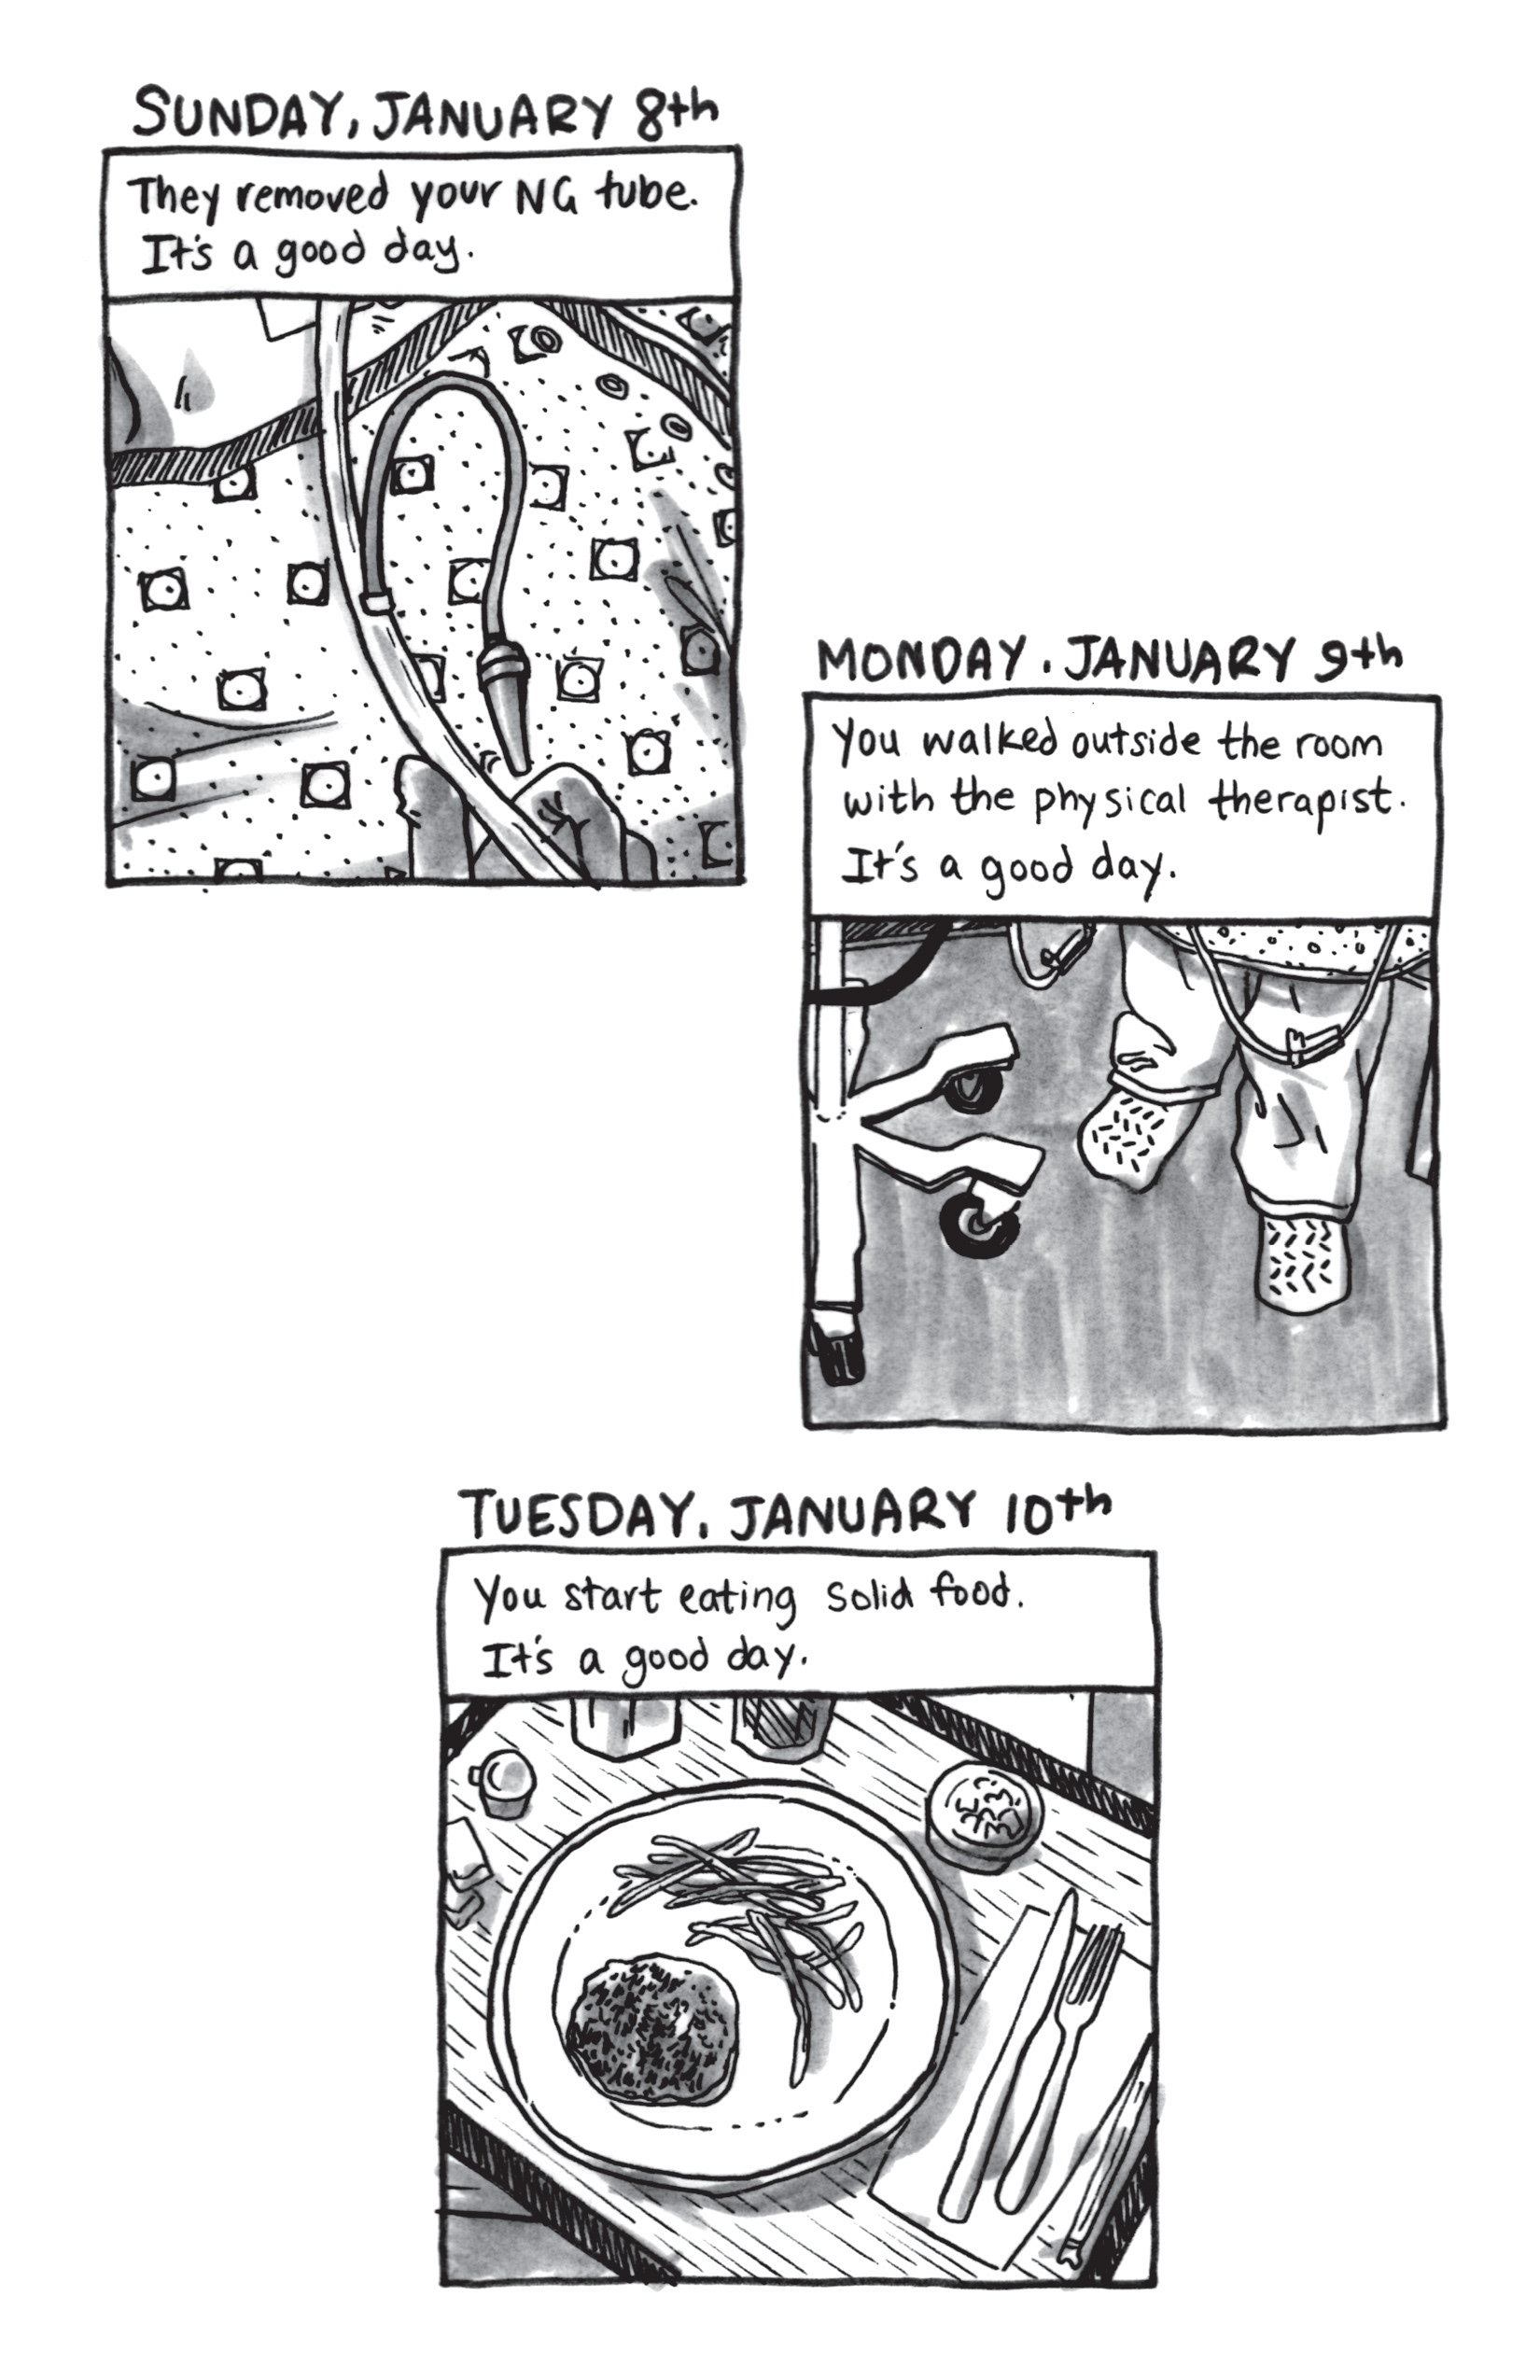 SUNDAY, JANUARY 8th
They removed your NG tube.
It's a good day.
MONDAY, JANUARY 9th
You walked outside the room
with the physical therapist.
It's a good day.
TUESDAY, JANUARY 10th
You start eating solid food.
It's a good day.